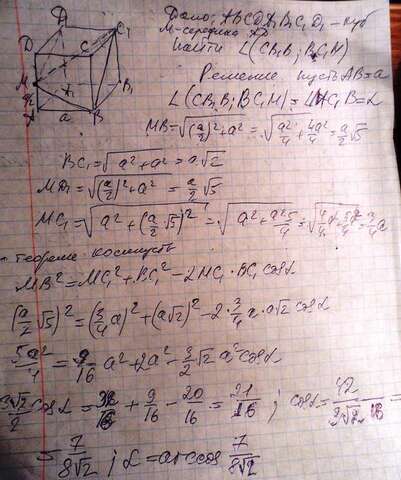 Дано: ABCDA₁B₁C₁D₁ - куб
M - середина AD
Найти ∠(CB₁B; BC₁M)
Решение. Пусть AB = a
∠(CB₁B; BC₁M) = ∠MC₁B = α
MB = √((a/2)² + a²) = √(a²/4 + 4a²/4) = a/2 √5
BC₁ = √(a² + a²) = a√2
MD₁ = √((a/2)² + a²) = a/2 √5
MC₁ = √(a² + (a/2 √5)²) = √(a² + a²5/4) = 3/4 a
теореме косинусов
MB² = MC₁² + BC₁² - 2MC₁ · BC₁ cosα
(a/2 √5)² = (3/4 a)² + (a√2)² - 2 · 3/4 a · a√2 cosα
5a²/4 = 9/16 a² + 2a² - 3/2 √2 a² cosα
3√2/2 cosα = + 9/16 - 20/16 = 21/16 ; cosα = 42/(3√2 · 16) =
= 7/(8√2) ; α = arccos 7/(8√2)
D₁
C₁
D
C
M
B₁
A
a
B